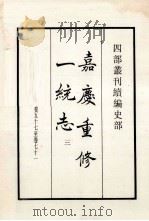 四部叢刊續編史部
嘉慶重修
一統志
三
卷五十七至卷七十一